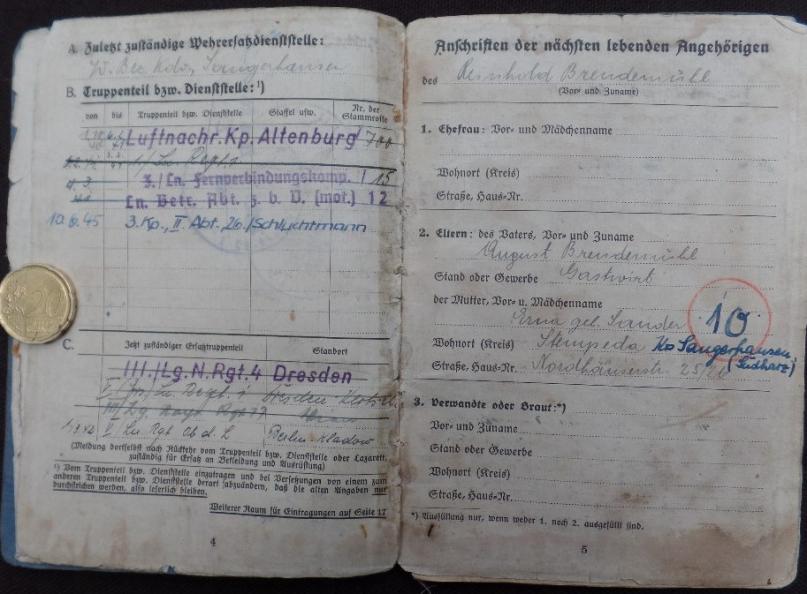 A. Zuletzt zuständige Wehrersatzdienststelle:
W. Bez. Kdo. Sangerhausen
B. Truppenteil bzw. Dienststelle:¹)
von bis Truppenteil bzw. Dienststelle Staffel usw. Nr. der Stammrolle
Luftnachr. Kp. Altenburg 700
3./Ln. Fernverbindungskomp. 15
Ln. Betr. Abt. z. b. V. (mot.) 12
10.6.45 3. Kp., II Abt, 26./Schlichtmann
C. Jetzt zuständiger Ersatztruppenteil Standort
III./Lg.N.Rgt.4 Dresden
Ln. Regt. 1 Dresden
Ln. Rgt Ob d. L Berlin Kladow
(Meldung dortselbst nach Rückkehr vom Truppenteil bzw. Dienststelle oder Lazarett,
zuständig für Ersatz an Bekleidung und Ausrüstung)
¹) Vom Truppenteil bzw. Dienststelle einzutragen und bei Versetzungen von einem zum
anderen Truppenteil bzw. Dienststelle derart abzuändern, daß die alten Angaben nur
durchstrichen werden, also leserlich bleiben.
Weiterer Raum für Eintragungen auf Seite 17
4
Anschriften der nächsten lebenden Angehörigen
des Reinhold Brendemühl
(Vor- und Zuname)
1. Ehefrau: Vor- und Mädchenname
Wohnort (Kreis)
Straße, Haus-Nr.
2. Eltern: des Vaters, Vor- und Zuname
August Brendemühl
Stand oder Gewerbe Gastwirt
der Mutter, Vor- u. Mädchenname
Erna geb. Sander
10
Wohnort (Kreis) Stempeda Krs Sangerhausen
(Südharz)
Straße, Haus-Nr. Nordhäuserstr. 25/26
3. Verwandte oder Braut:*)
Vor- und Zuname
Stand oder Gewerbe
Wohnort (Kreis)
Straße, Haus-Nr.
*) Ausfüllung nur, wenn weder 1. noch 2. ausgefüllt sind.
5